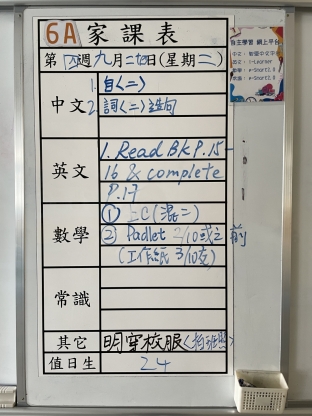 6A 家課表
第 週九月二十日(星期二)
中文
1. 自〈二〉
2. 詞〈二〉造句
英文
1. Read Bk P.15-
16 & complete
P.17
數學
① 上C(混二)
② Padlet 2/10或之前
(工作紙 3/10交)
常識
其它
明穿校服〈拍班照〉
值日生
24
自主學習 網上平台